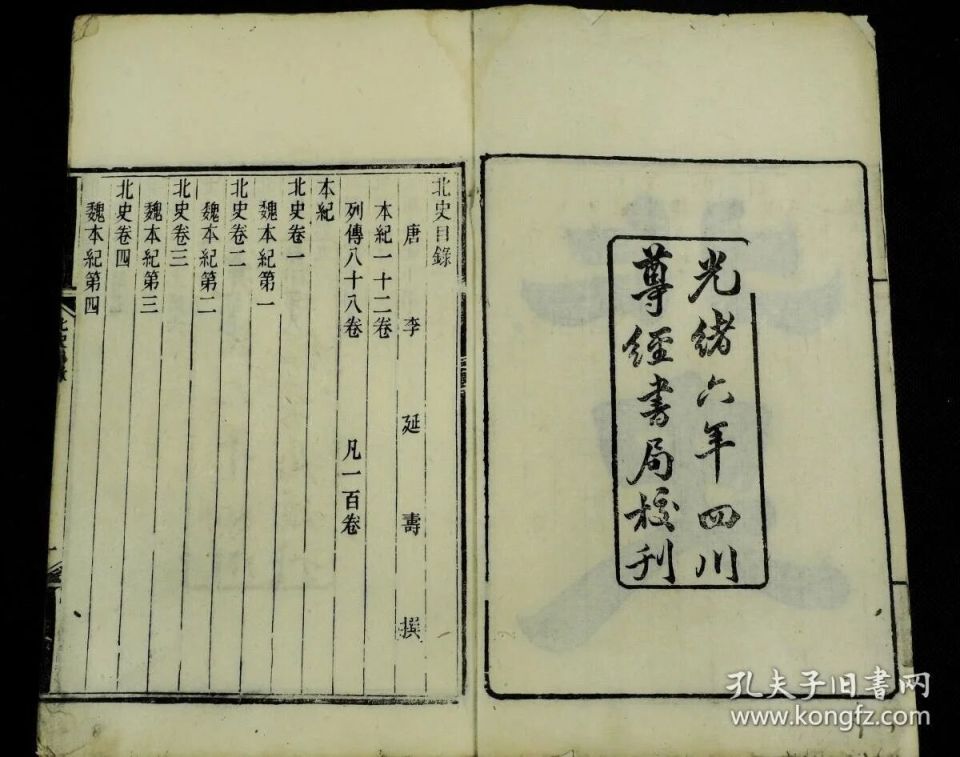 光緒六年四川
尊經書局校刊
北史目錄
唐 李 延 壽 撰
本紀一十二卷
列傳八十八卷 凡一百卷
本紀
北史卷一
魏本紀第一
北史卷二
魏本紀第二
北史卷三
魏本紀第三
北史卷四
魏本紀第四
孔夫子旧書网
www.kongfz.com